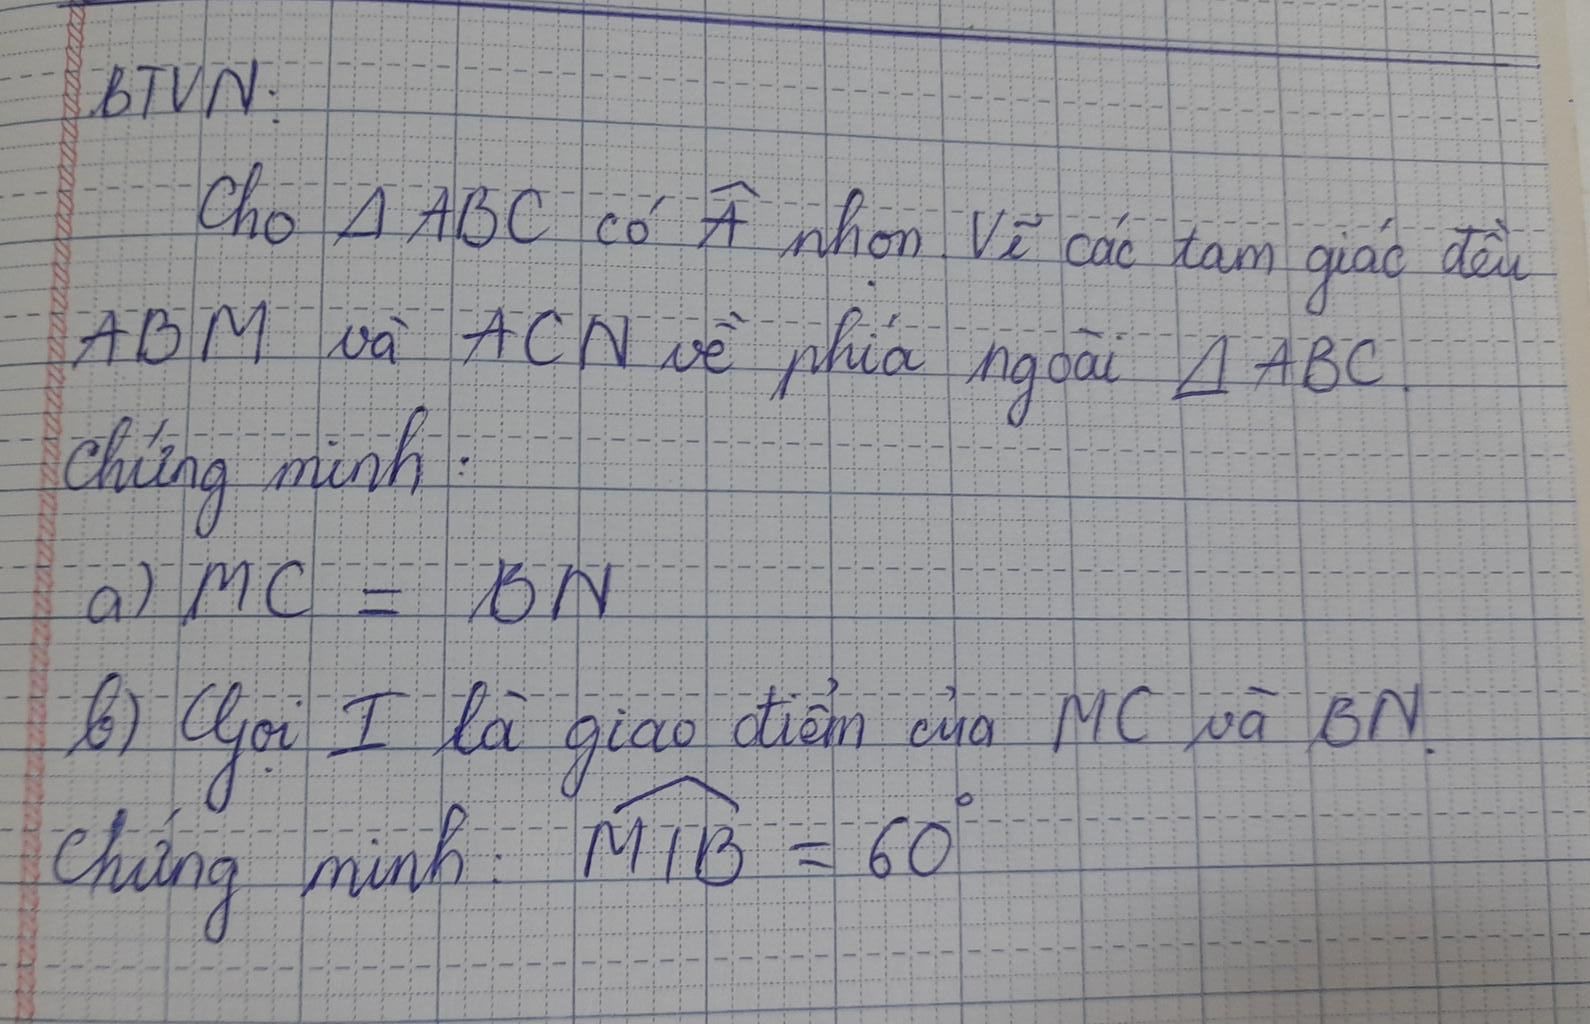 BTVN:
Cho Δ ABC có Â nhọn. Vẽ các tam giác đều
ABM và ACN về phía ngoài Δ ABC.
Chứng minh:
a) MC = BN
b) Gọi I là giao điểm của MC và BN.
Chứng minh: \widehat{MIB} = 60°